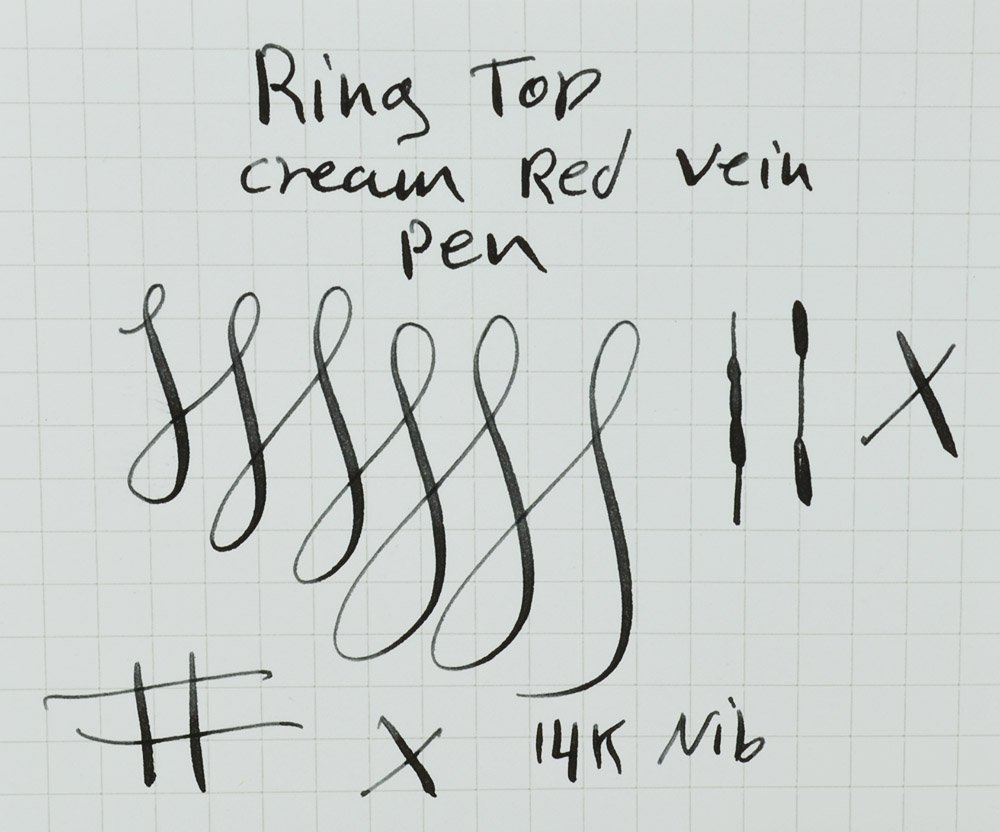 Ring Top
cream Red Vein
Pen
14K Nib